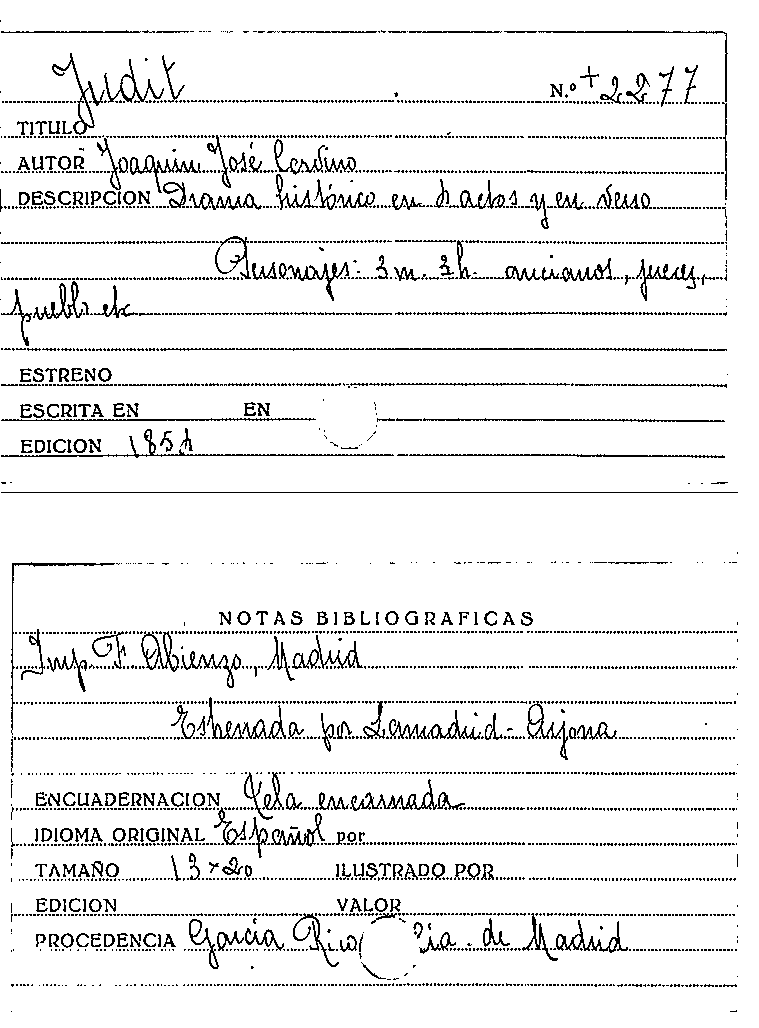 Judit N.º + 2277
TITULO
AUTOR Joaquin José Cervino
DESCRIPCION Drama histórico en 4 actos y en verso
Personajes: 3 m. 3 h. ancianos, jueces,
pueblo etc
ESTRENO
ESCRITA EN EN
EDICION 1854
NOTAS BIBLIOGRAFICAS
Imp. F. Abienzo, Madrid
Estrenada por Lamadrid - Arjona
ENCUADERNACION Tela encarnada
IDIOMA ORIGINAL Español por
TAMAÑO 13 x 20 ILUSTRADO POR
EDICION VALOR
PROCEDENCIA García Rico Cía. de Madrid